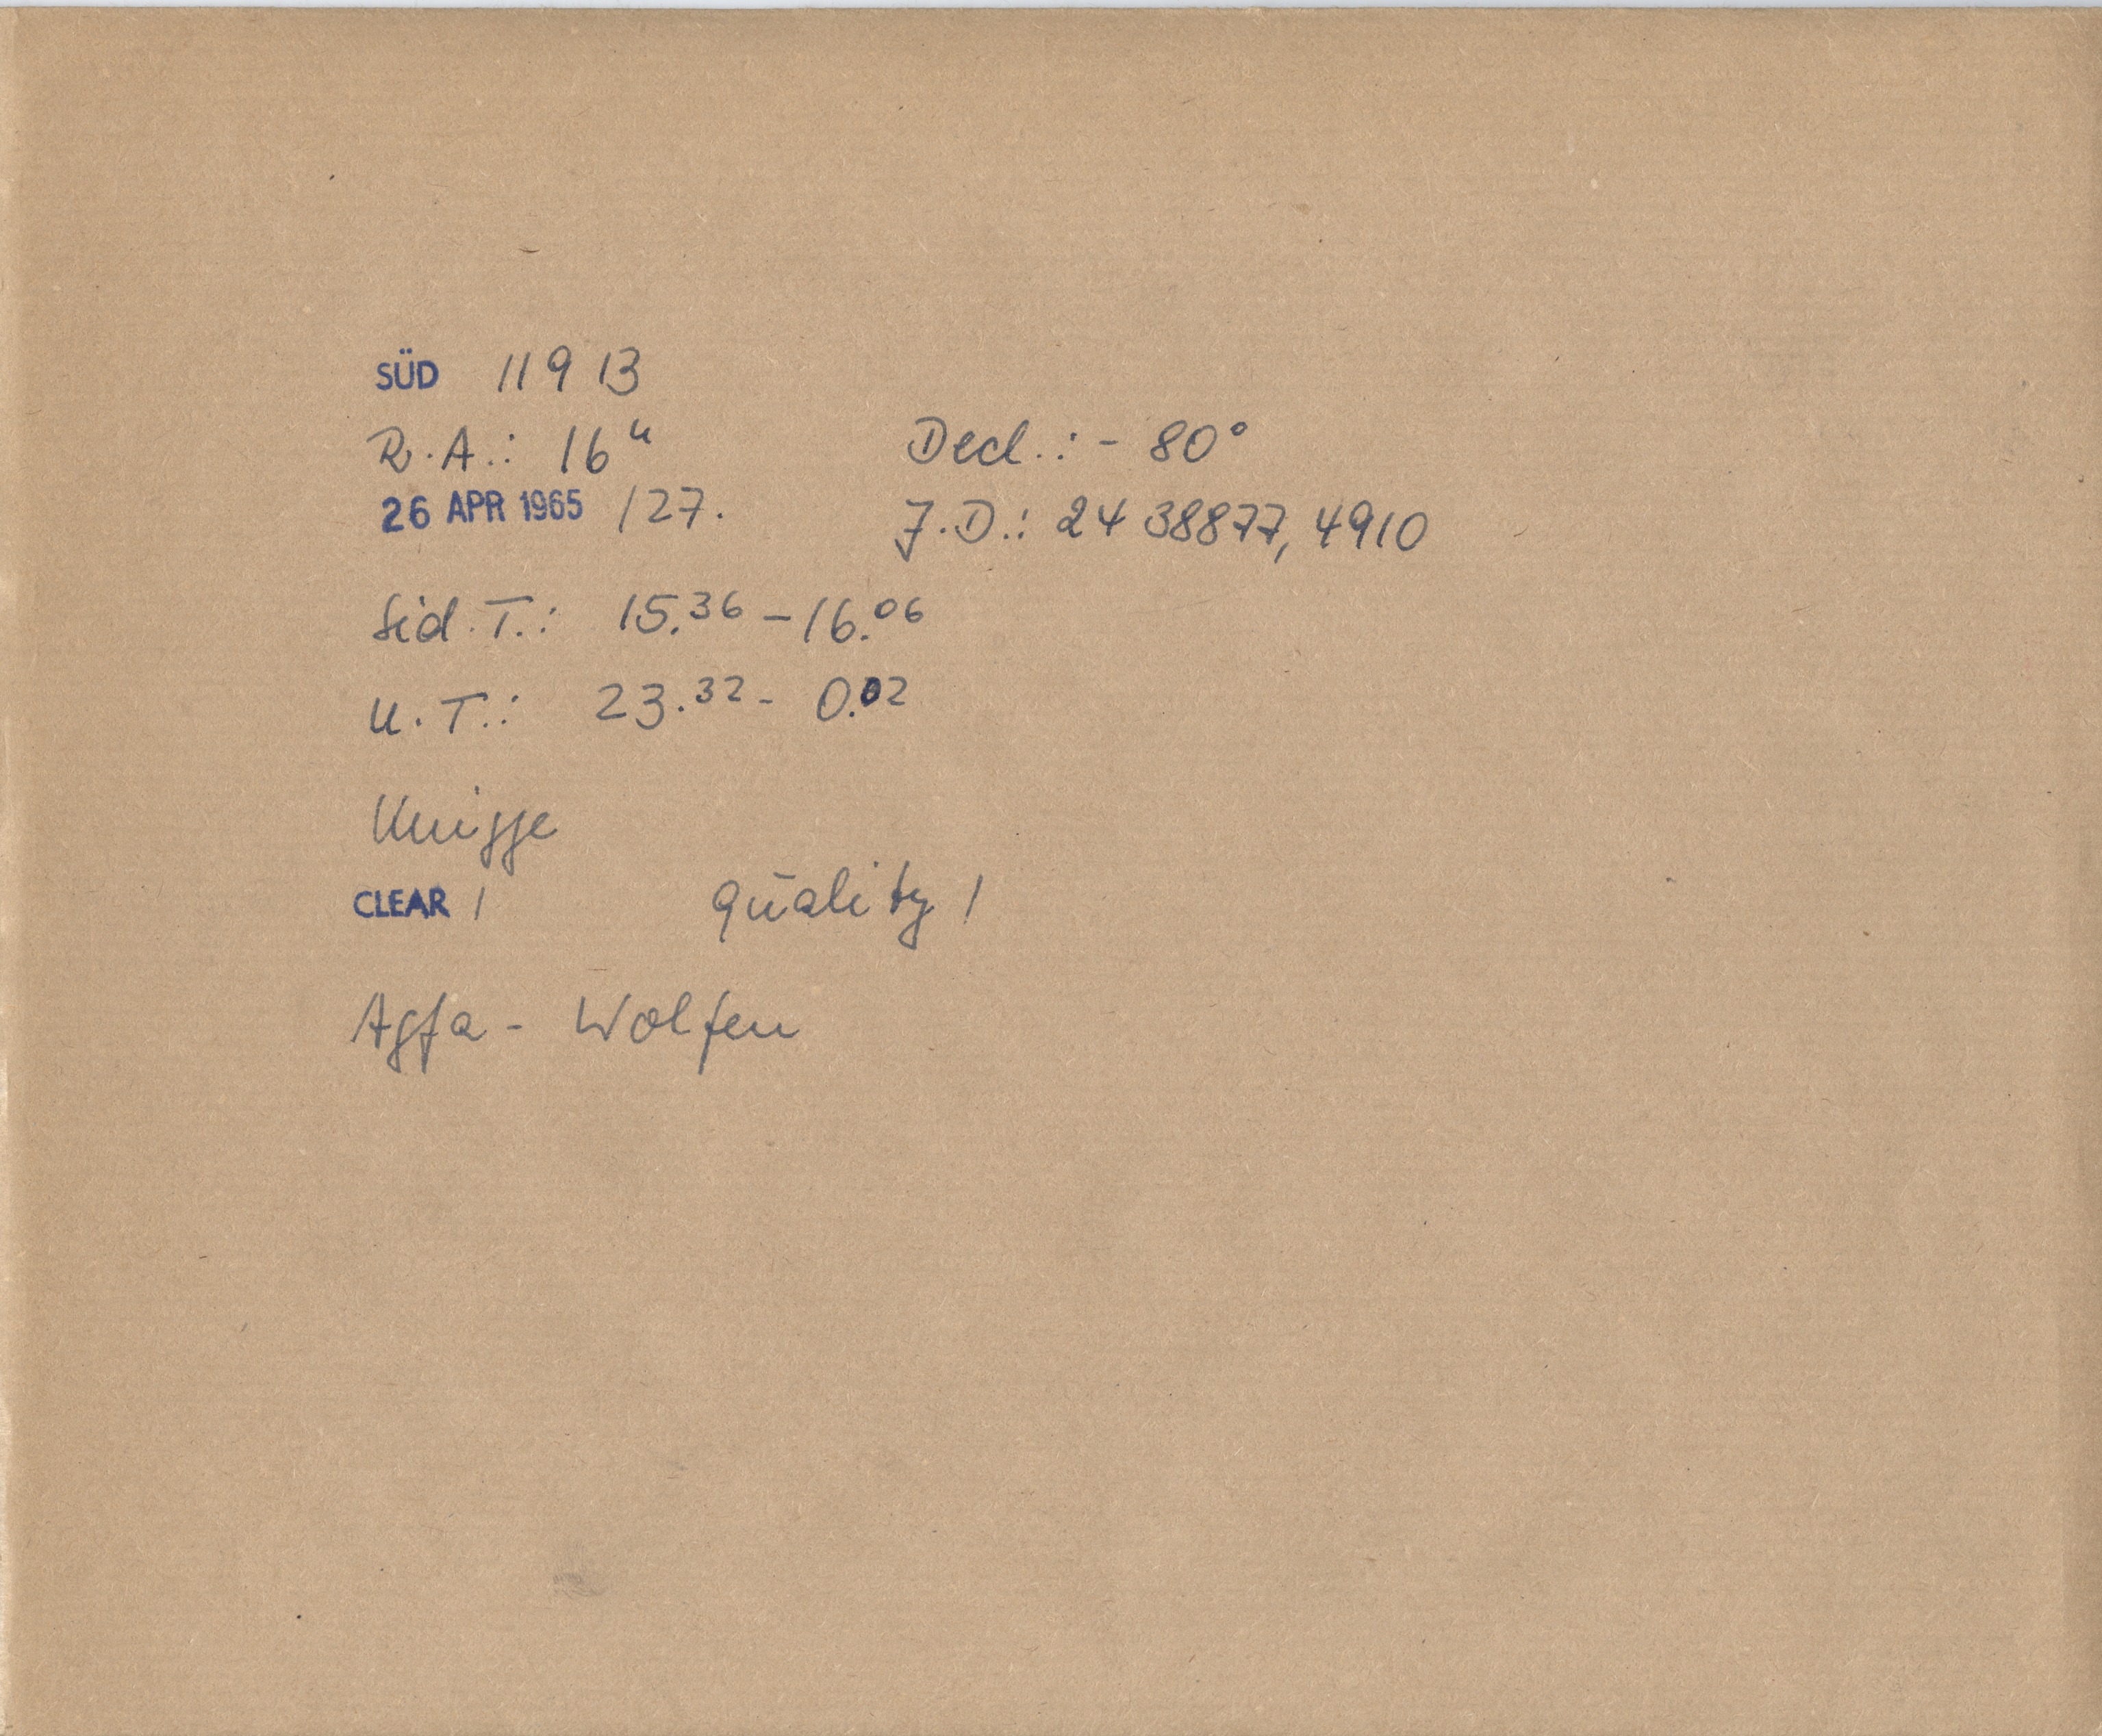 SÜD 11913
R.A.: 16ʰ Decl.: - 80°
26 APR 1965 /27. J.D.: 24 38877,4910
Sid.T.: 15.36 - 16.06
U.T.: 23.32 - 0.02
Knigge
CLEAR 1 Quality 1
Agfa - Wolfen